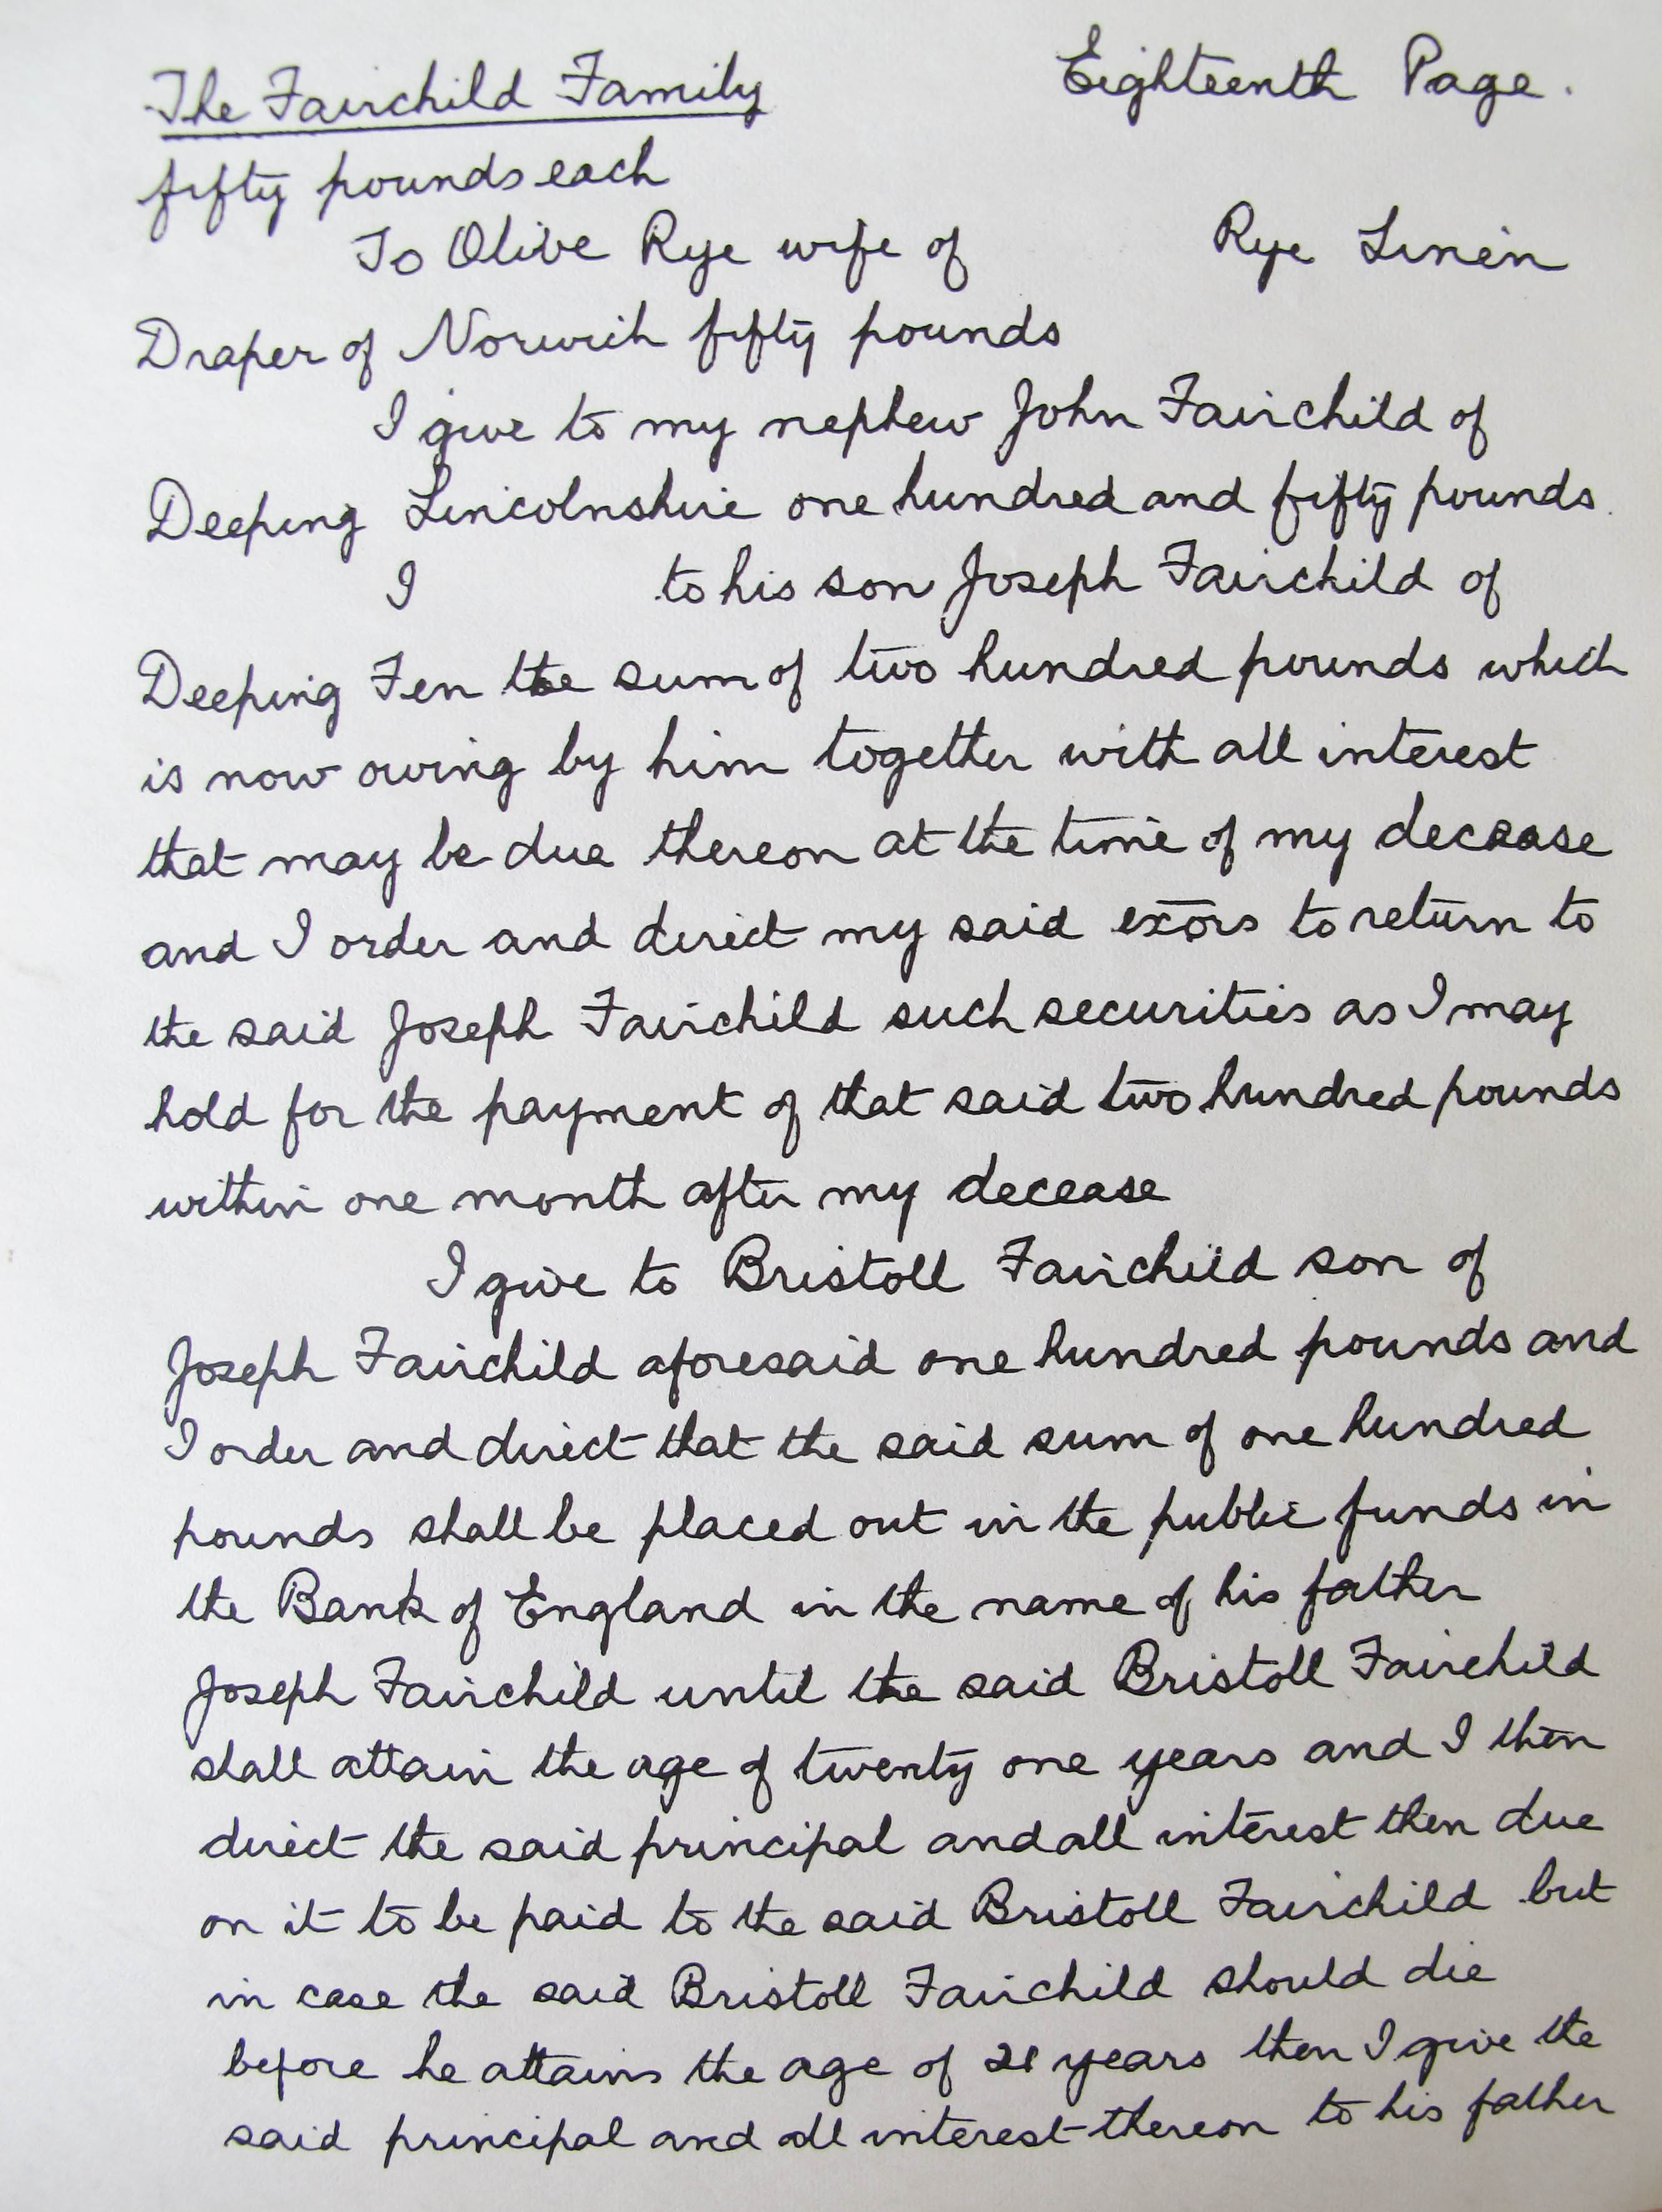 The Fairchild Family Eighteenth Page.
fifty pounds each
To Olive Rye wife of Rye Linen
Draper of Norwich fifty pounds
I give to my nephew John Fairchild of
Deeping Lincolnshire one hundred and fifty pounds.
I to his son Joseph Fairchild of
Deeping Fen the sum of two hundred pounds which
is now owing by him together with all interest
that may be due thereon at the time of my decease
and I order and direct my said exors to return to
the said Joseph Fairchild such securities as I may
hold for the payment of that said two hundred pounds
within one month after my decease
I give to Bristoll Fairchild son of
Joseph Fairchild aforesaid one hundred pounds and
I order and direct that the said sum of one hundred
pounds shall be placed out in the public funds in
the Bank of England in the name of his father
Joseph Fairchild until the said Bristoll Fairchild
shall attain the age of twenty one years and I then
direct the said principal and all interest then due
on it to be paid to the said Bristoll Fairchild but
in case the said Bristoll Fairchild should die
before he attains the age of 21 years then I give the
said principal and all interest thereon to his father